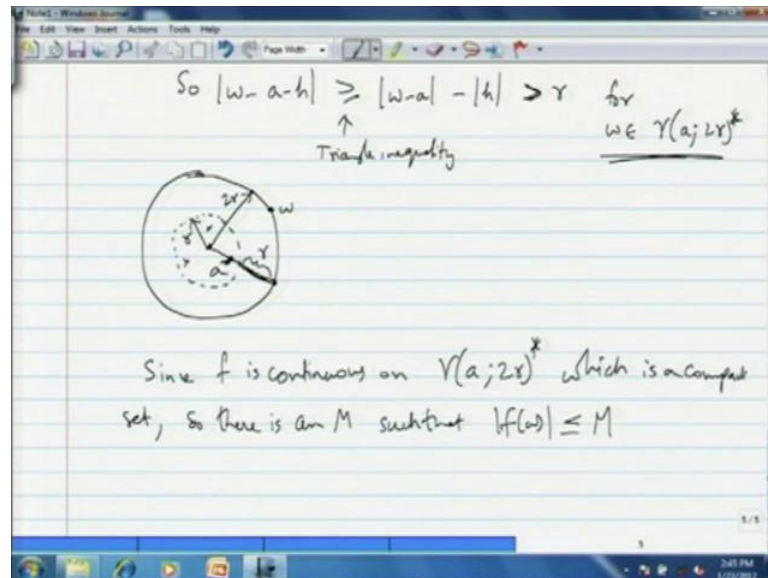 Note1 - Windows Journal
File Edit View Insert Actions Tools Help
Page Width
So |w-a-h| ≥ |w-a| - |h| > r for
w∈ γ(a; 2r)*
↑
Triangle inequality
2r
w
r
r
a
Since f is continuous on γ(a; 2r)* which is a compact
set, so there is an M such that |f(w)| ≤ M
5 / 5
5
2:45 PM